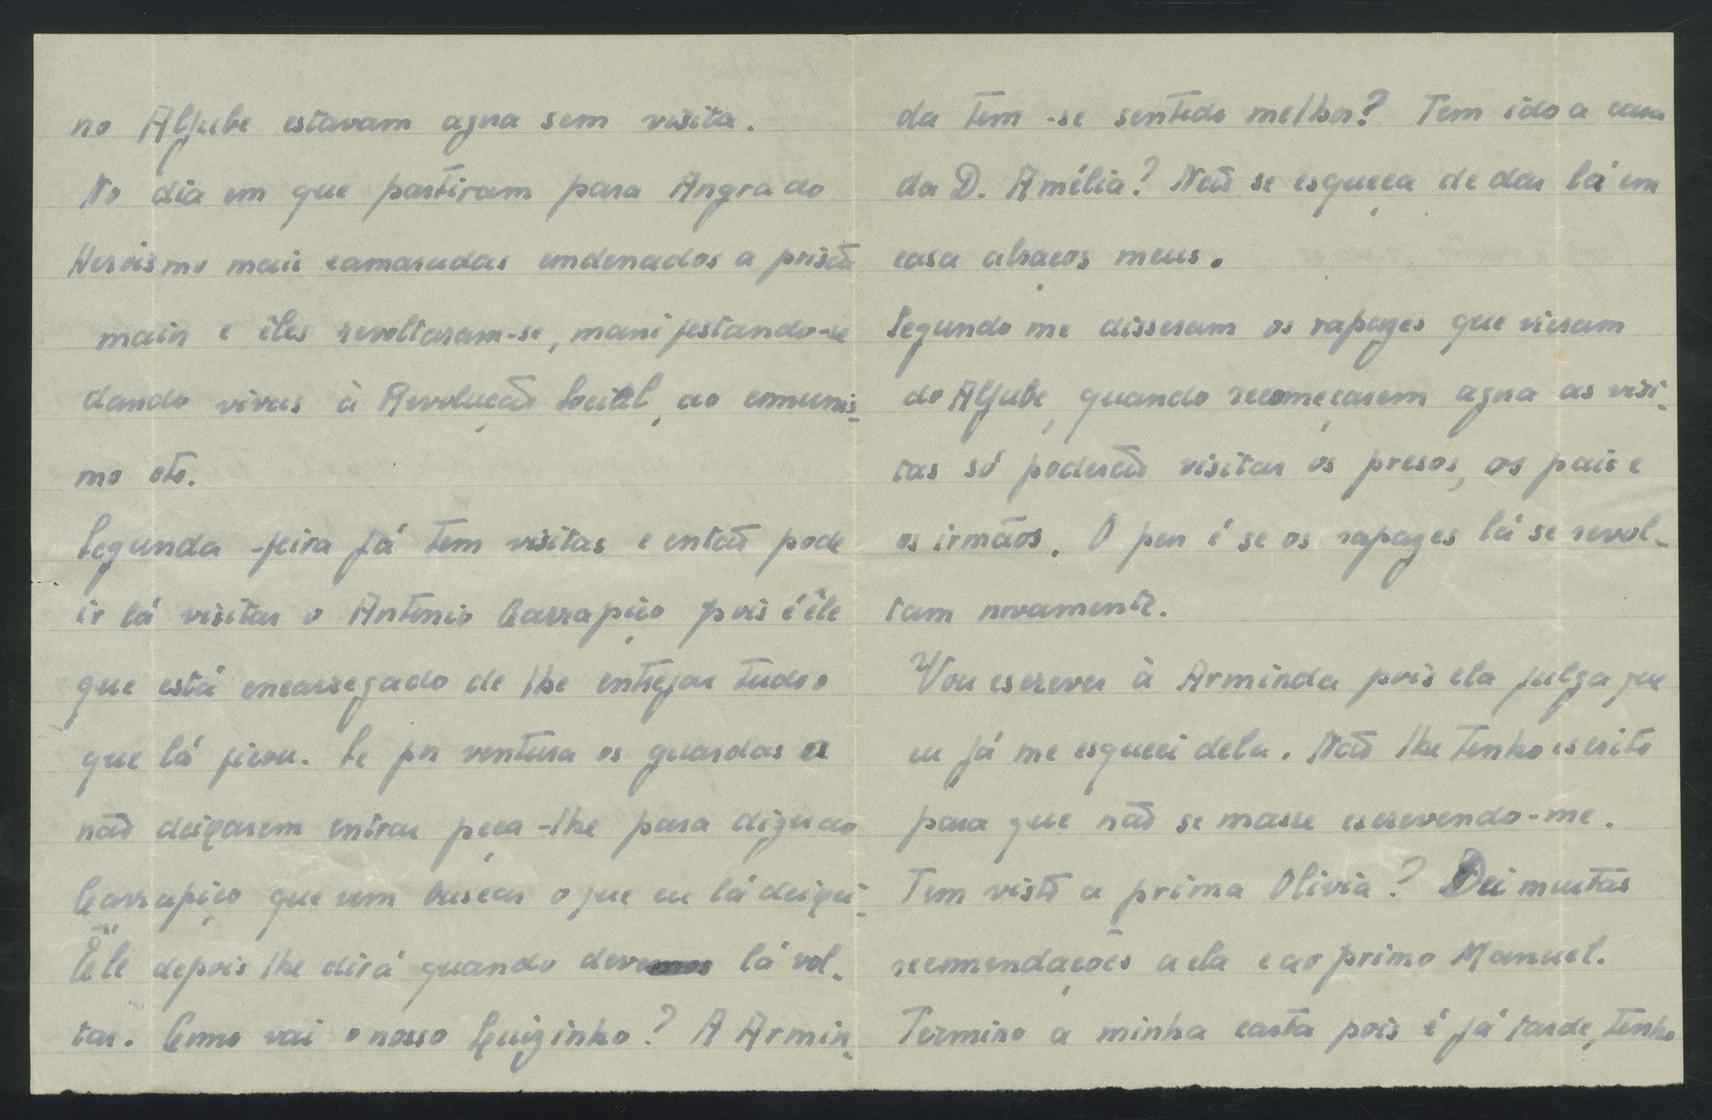 no Aljube estavam agua sem visita.
No dia em que partiram para Angra do
Heroismo mais camaradas condenados a prisão
maior e êles revoltaram-se, manifestando-se
dando vivas à Revolução Social, ao comunis-
mo etc.
Segunda-feira já tem visitas e então pode
ir lá visitar o Antonio Carrapiço pois é êle
que está encarregado de lhe entregar tudo o
que lá ficou. Se por ventura os guardas a
não deixarem entrar peça-lhe para dizer ao
Carrapiço que vem buscar o que eu lá deixei.
Êle depois lhe dirá quando deve lá vol-
tar. Como vai o nosso Luizinho? A Armin-
da tem-se sentido melhor? Tem ido a casa
da D. Amélia? Não se esqueça de dar lá em
casa abraços meus.
Segundo me disseram os rapazes que vieram
do Aljube, quando recomeçarem agua as visi-
tas só poderão visitar os presos, os pais e
os irmãos. O peor é se os rapazes lá se revol-
tam novamente.
Vou escrever à Arminda pois ela julga que
eu já me esqueci dela. Não lhe tenho escrito
para que não se masse escrevendo-me.
Tem visto a prima Olivia? Dei muitas
recomendações a ela e ao primo Manuel.
Termino a minha carta pois é já tarde, tenho